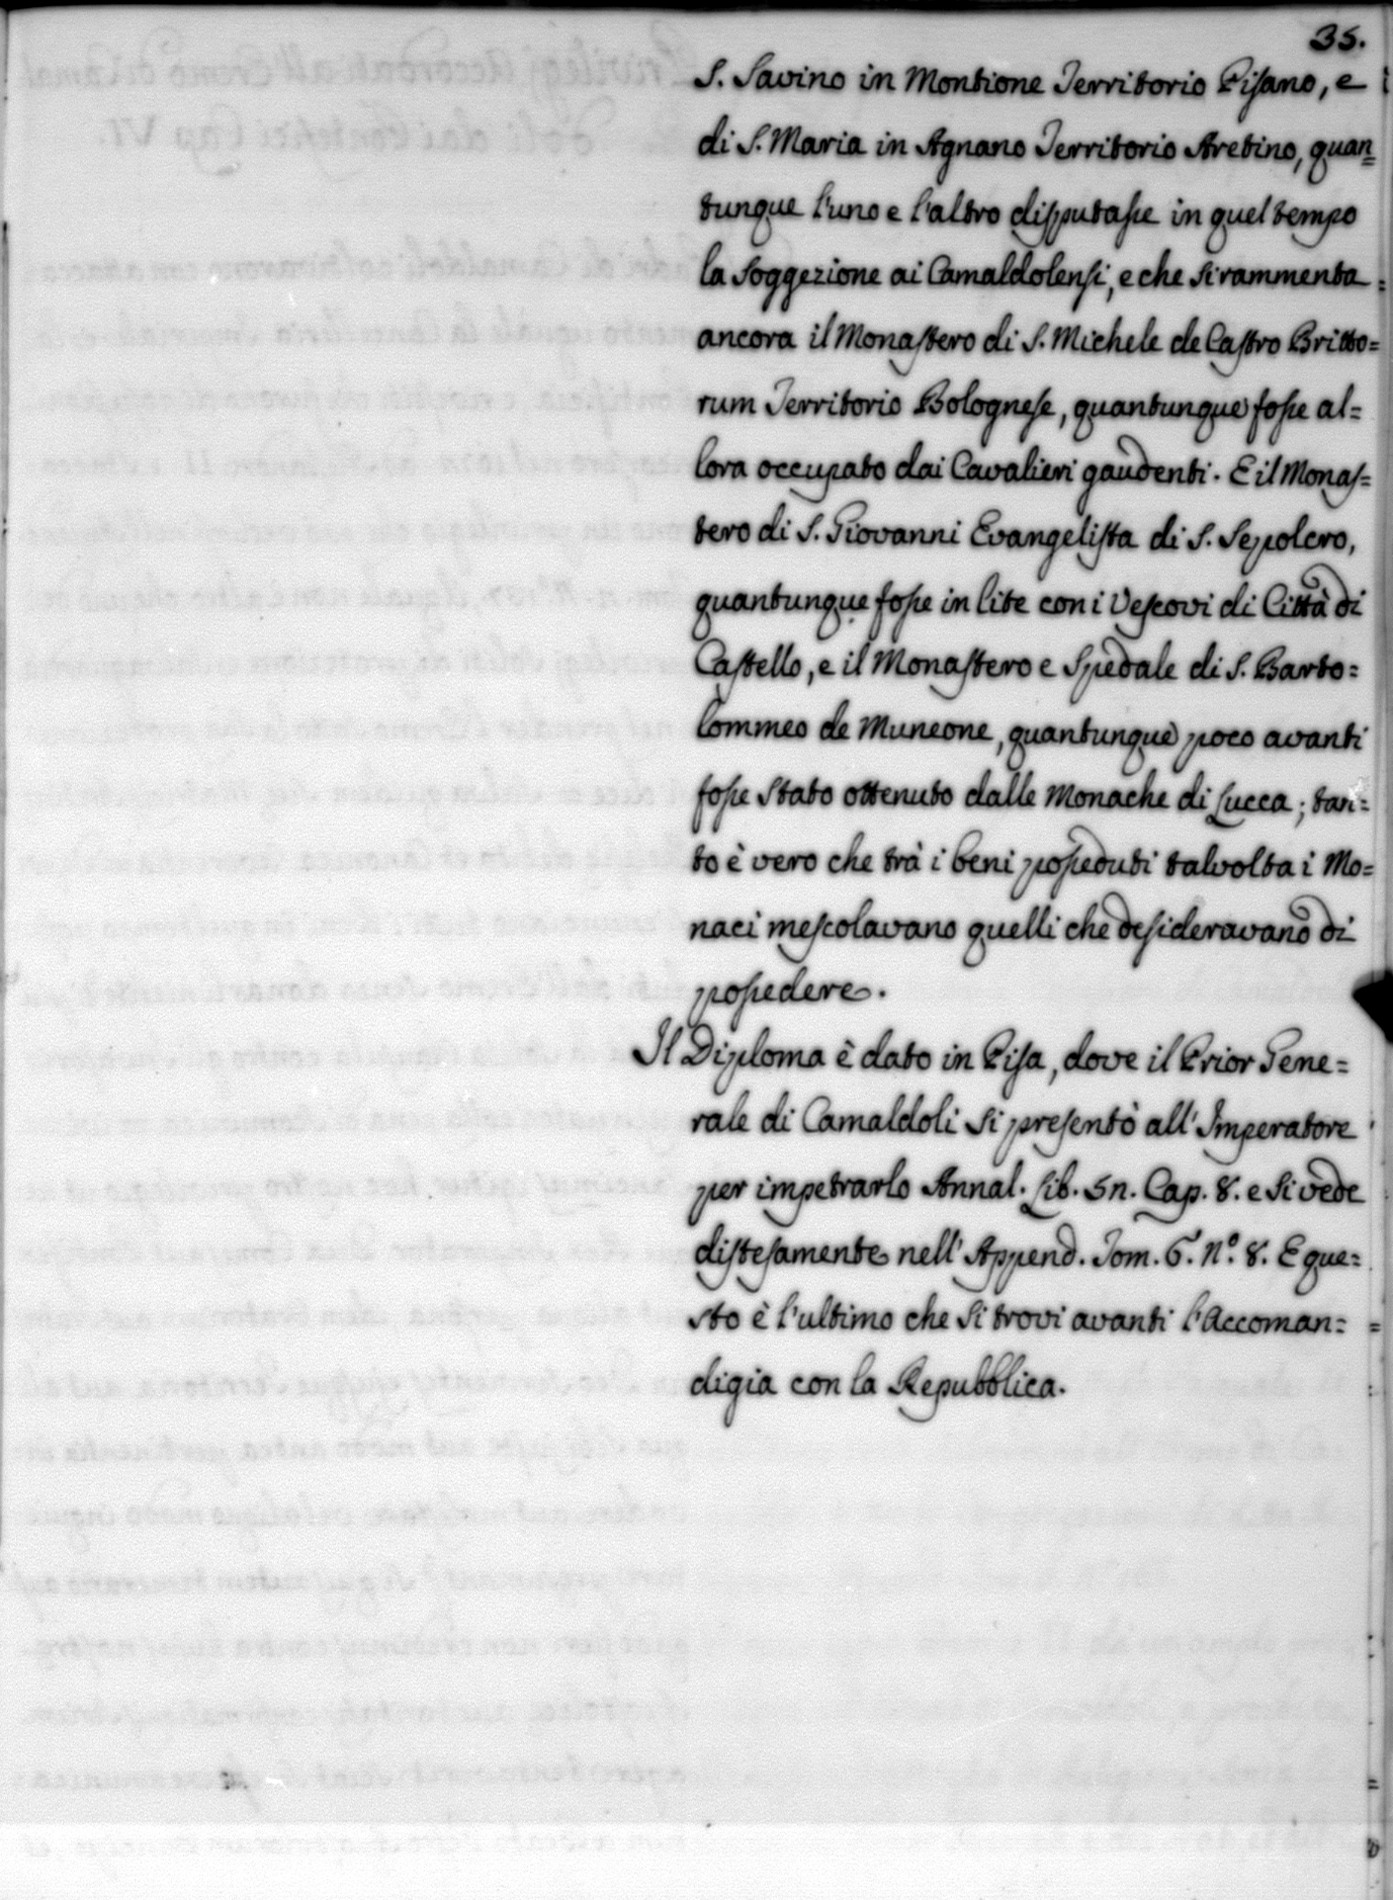 35.
S. Savino in Montione Territorio Pisano, e
di S. Maria in Agnano Territorio Aretino, quan=
tunque l'uno e l'altro disputasse in quel tempo
la soggezione ai Camaldolensi, e che si rammenta
ancora il Monastero di S. Michele de Castro Britto=
rum Territorio Bolognese, quantunque fosse al=
lora occupato dai Cavalieri gaudenti. E il Monas=
tero di S. Giovanni Evangelista di S. Sepolcro,
quantunque fosse in lite con i Vescovi di Città di
Castello, e il Monastero e Spedale di S. Barto=
lommeo de Muneone, quantunque poco avanti
fosse stato ottenuto dalle Monache di Lucca; tan=
to è vero che trà i beni posseduti talvolta i Mo=
naci mescolavano quelli che desideravano di
possedere.
Il Diploma è dato in Pisa, dove il Prior Gene=
rale di Camaldoli si presentò all'Imperatore
per impetrarlo Annal. Lib. 5n. Cap. 8. e si vede
distesamente nell'Append. Tom. 6. N.º 8. E que=
sto è l'ultimo che si trovi avanti l'Accoman=
digia con la Repubblica.